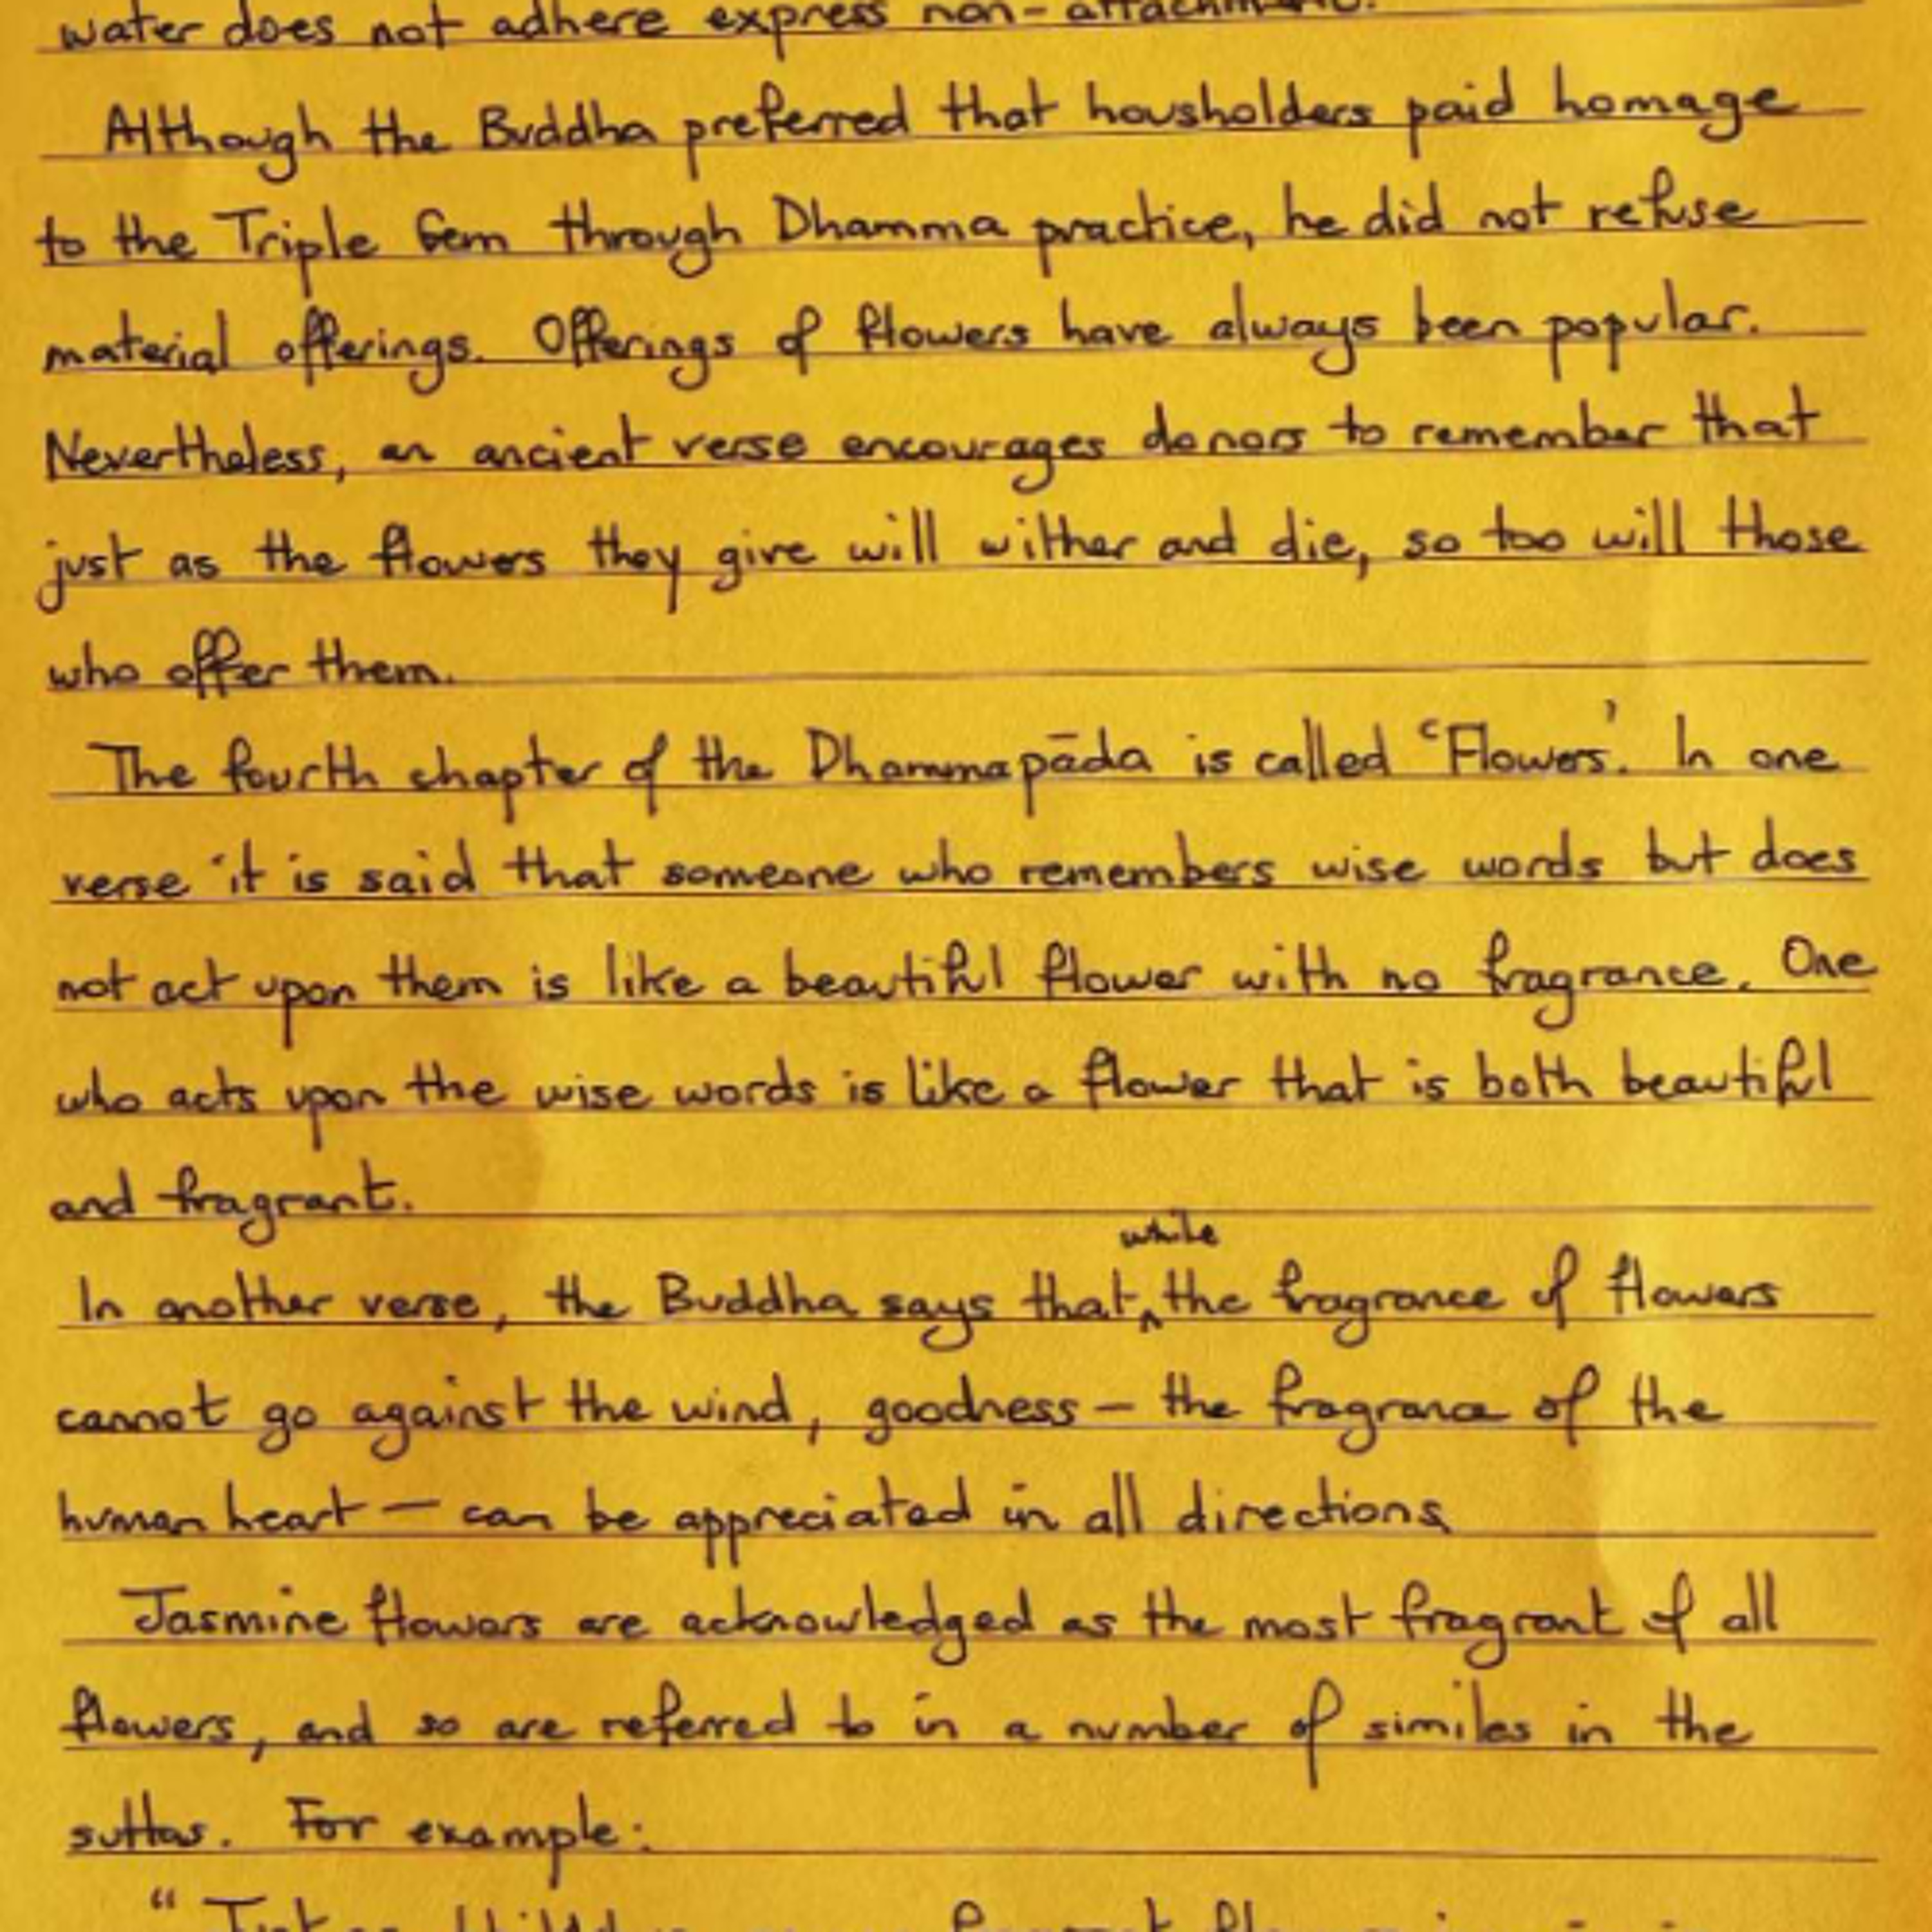 water does not adhere express non-attachment.
Although the Buddha preferred that housholders paid homage
to the Triple Gem through Dhamma practice, he did not refuse
material offerings. Offerings of flowers have always been popular.
Nevertheless, an ancient verse encourages donors to remember that
just as the flowers they give will wither and die, so too will those
who offer them.
The fourth chapter of the Dhammapāda is called 'Flowers'. In one
verse it is said that someone who remembers wise words but does
not act upon them is like a beautiful flower with no fragrance. One
who acts upon the wise words is like a flower that is both beautiful
and fragrant.
while
In another verse, the Buddha says that ^ the fragrance of flowers
cannot go against the wind, goodness – the fragrance of the
human heart – can be appreciated in all directions.
Jasmine flowers are acknowledged as the most fragrant of all
flowers, and so are referred to in a number of similes in the
suttas. For example: